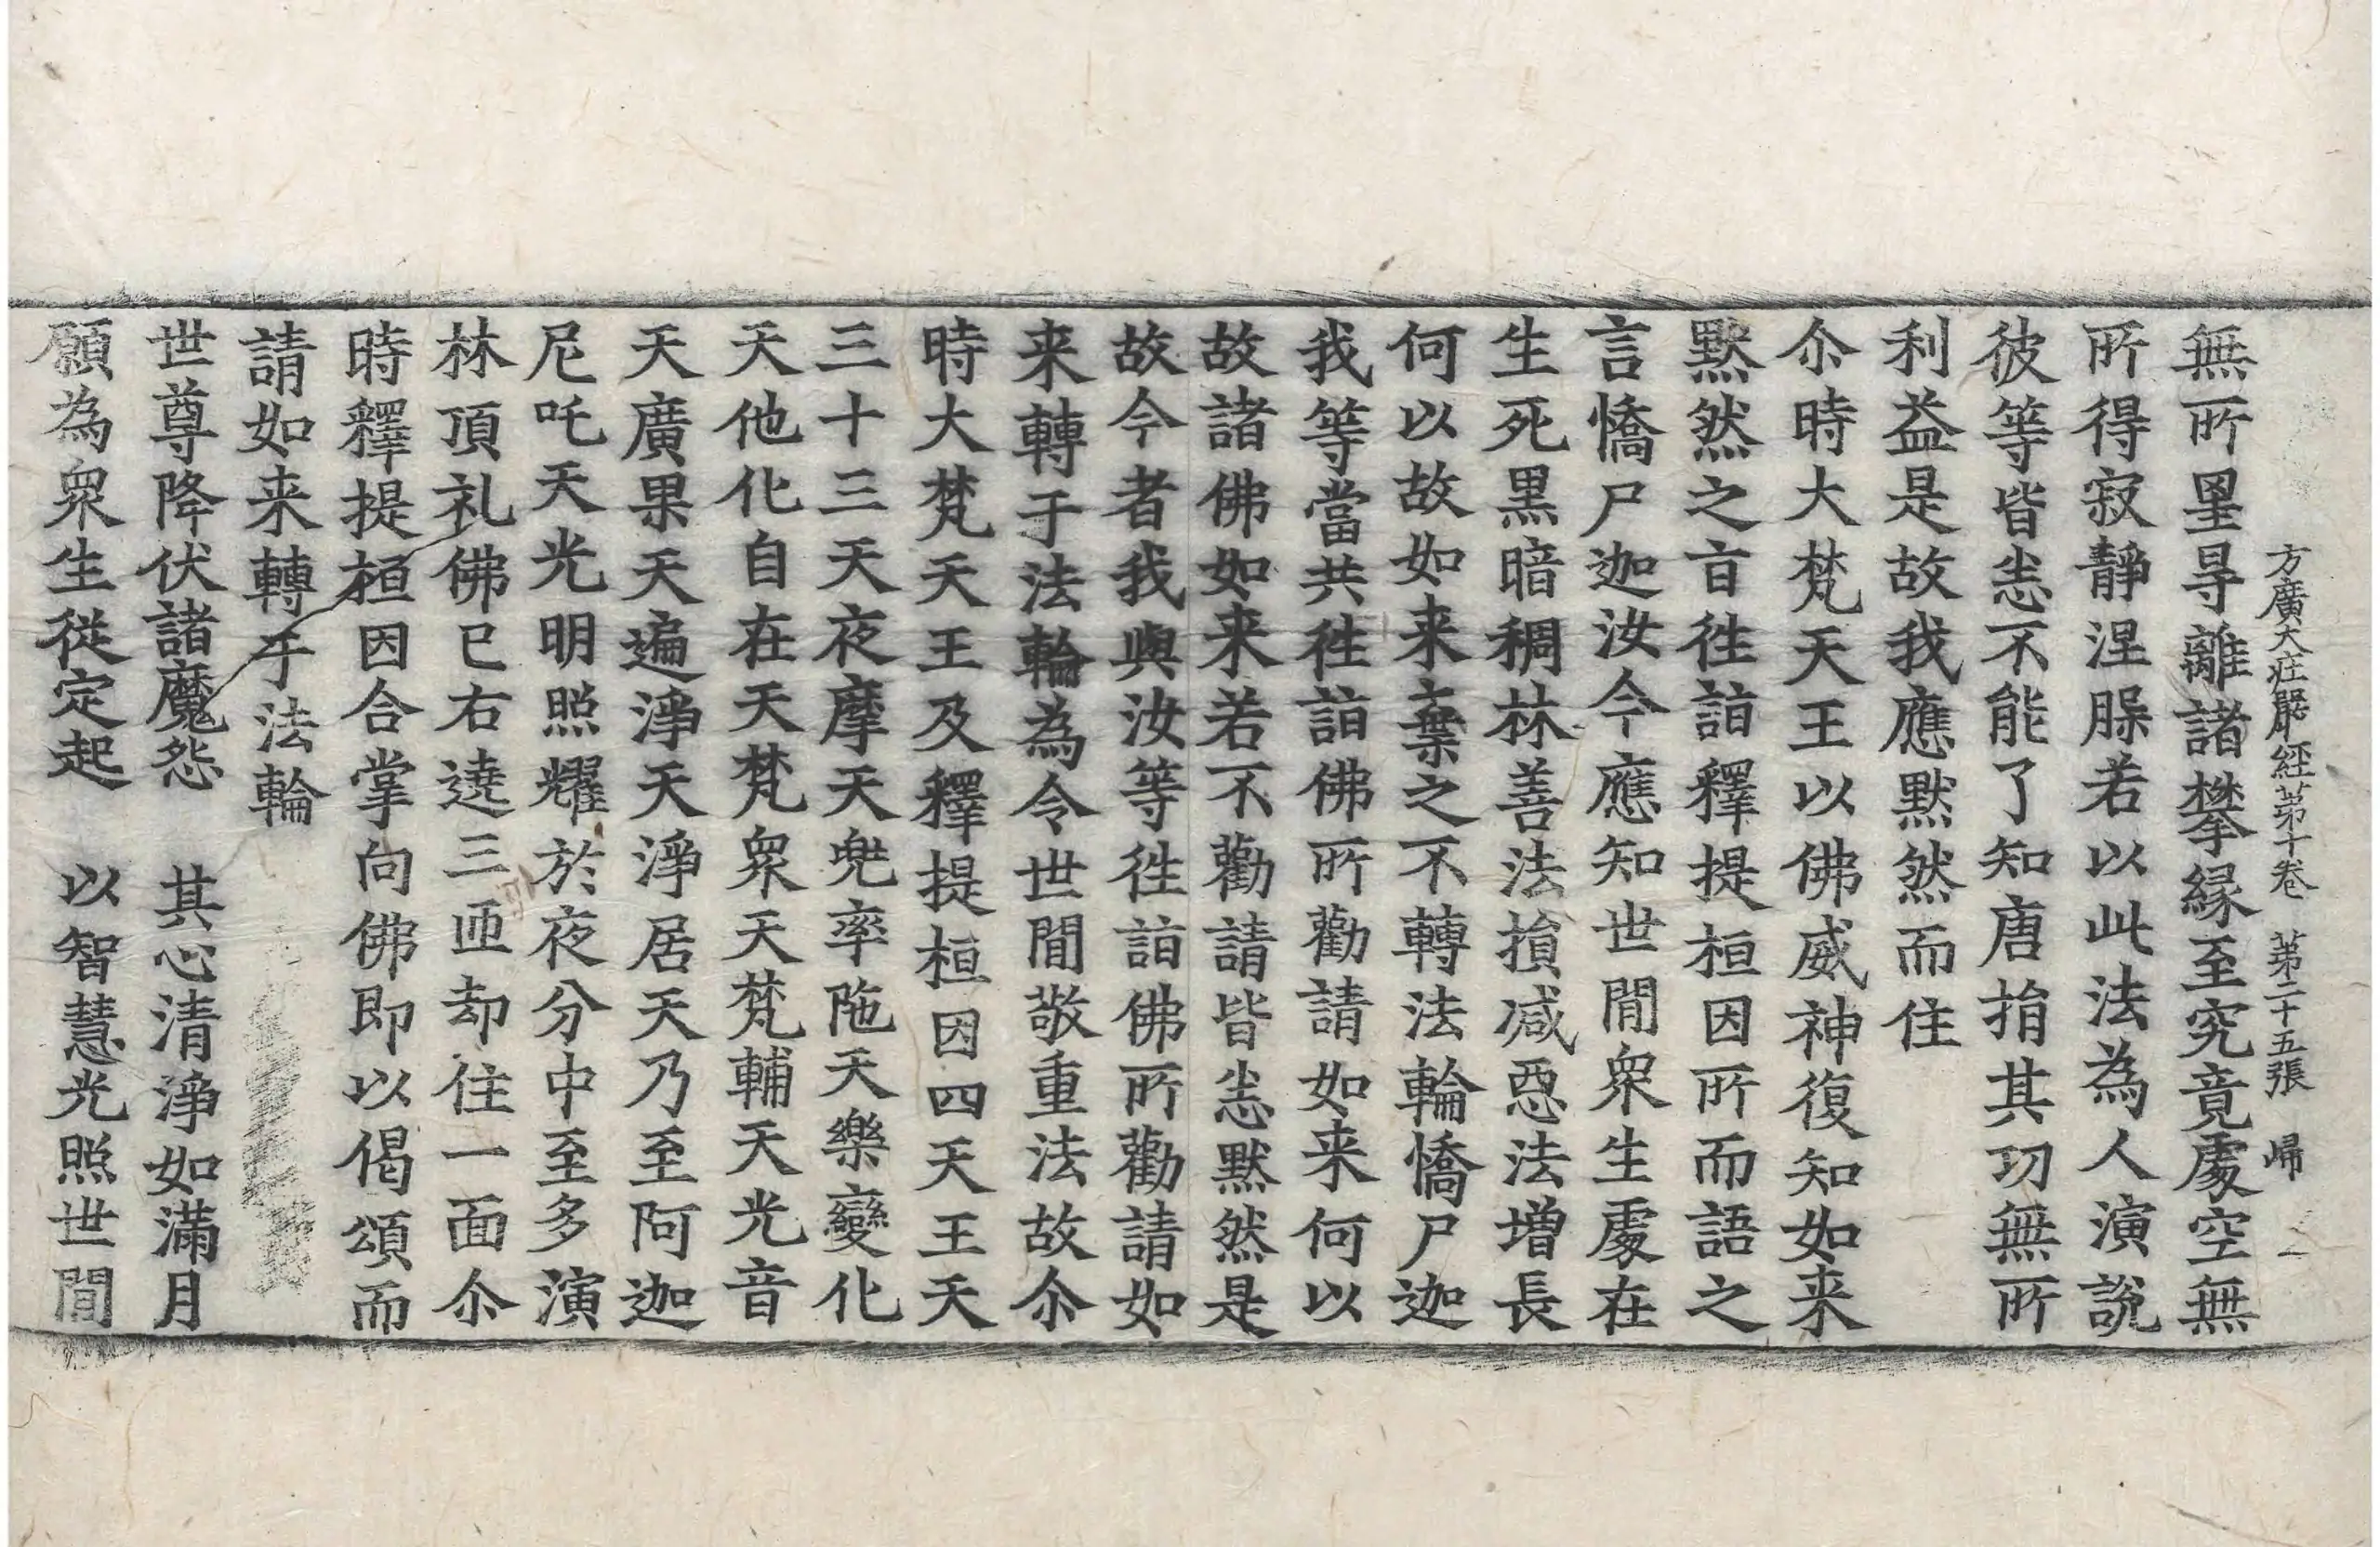 方廣大莊嚴經苐十卷 苐二十五張 㱕
無所罣㝵離諸攀緣至究竟處空無
所得寂靜涅脲若以此法為人演說
彼等皆㤙不能了知唐捐其功無所
利益是故我應默然而住
尒時大梵天王以佛威神復知如来
默然之㫖徃詣釋提桓因所而語之
言憍尸迦汝今應知世間衆生處在
生死黒暗稠林善法損减惡法增長
何以故如来棄之不轉法輪憍尸迦
我等當共徃詣佛所勸請如来何以
故諸佛如来若不勸請皆㤙默然是
故今者我與汝等徃詣佛所勸請如
来轉于法輪為令世間敬重法故尒
時大梵天王及釋提桓因四天王天
三十三天夜摩天兜率陁天樂變化
天他化自在天梵衆天梵輔天光音
天廣果天遍淨天淨居天乃至阿迦
尼吒天光明照耀於夜分中至多演
林頂礼佛已右遶三匝却住一面尒
時釋提桓因合掌向佛即以偈頌而
請如来轉于法輪
世尊降伏諸魔怨 其心清淨如滿月
願為衆生從定起 以智慧光照世間